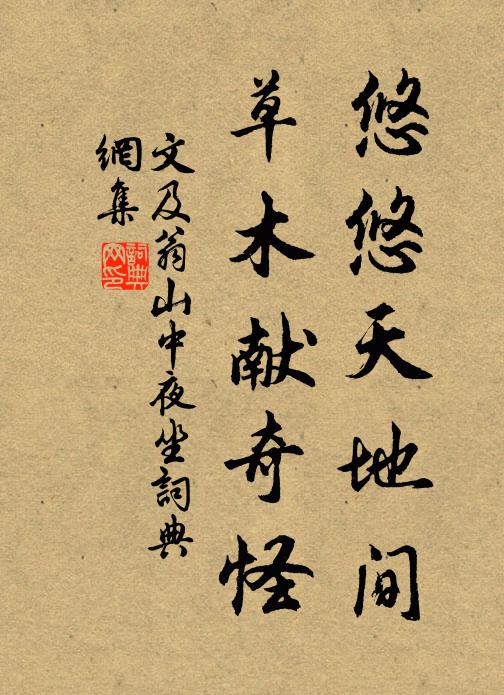 悠悠天地间
草木献奇怪
文及翁山中夜坐詞典
網集
詞典
网印